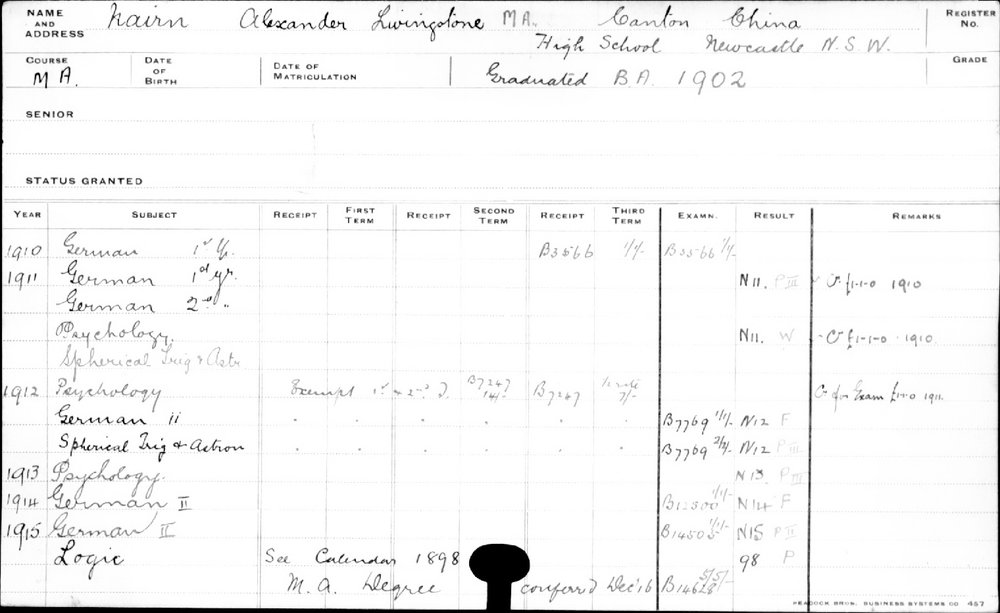 NAME AND ADDRESS Nairn Alexander Livingstone M A. Canton China REGISTER No.
High School Newcastle N. S. W.
COURSE M A. DATE OF BIRTH DATE OF MATRICULATION Graduated B. A. 1902 GRADE
SENIOR
STATUS GRANTED
YEAR SUBJECT RECEIPT FIRST TERM RECEIPT SECOND TERM RECEIPT THIRD TERM EXAMN. RESULT REMARKS
1910 German 1st Yr. B3566 1/1/- B3566 1/1/-
1911 German 1st yr. N11. P III £1-1-0 1910
German 2nd "
Psychology. N11. W £1-1-0 1910.
Spherical Trig & Astr
1912 Psychology Exempt 1st & 2nd T. B7247 14/- B7247 7/- for Exam £1-1-0 1911
German ii B7769 1/1/- N12 F
Spherical Trig & Astron B7769 2/2/- N12 P III
1913 Psychology. N13. P III
1914 German II 1/1/- N14 F
1915 German II 1/1/- N15 P II
Logic See Calendar 1898 98 P
M. A. Degree conferr'd Dec '16 5/5/-
PEACOCK BROS. BUSINESS SYSTEMS CO. 457